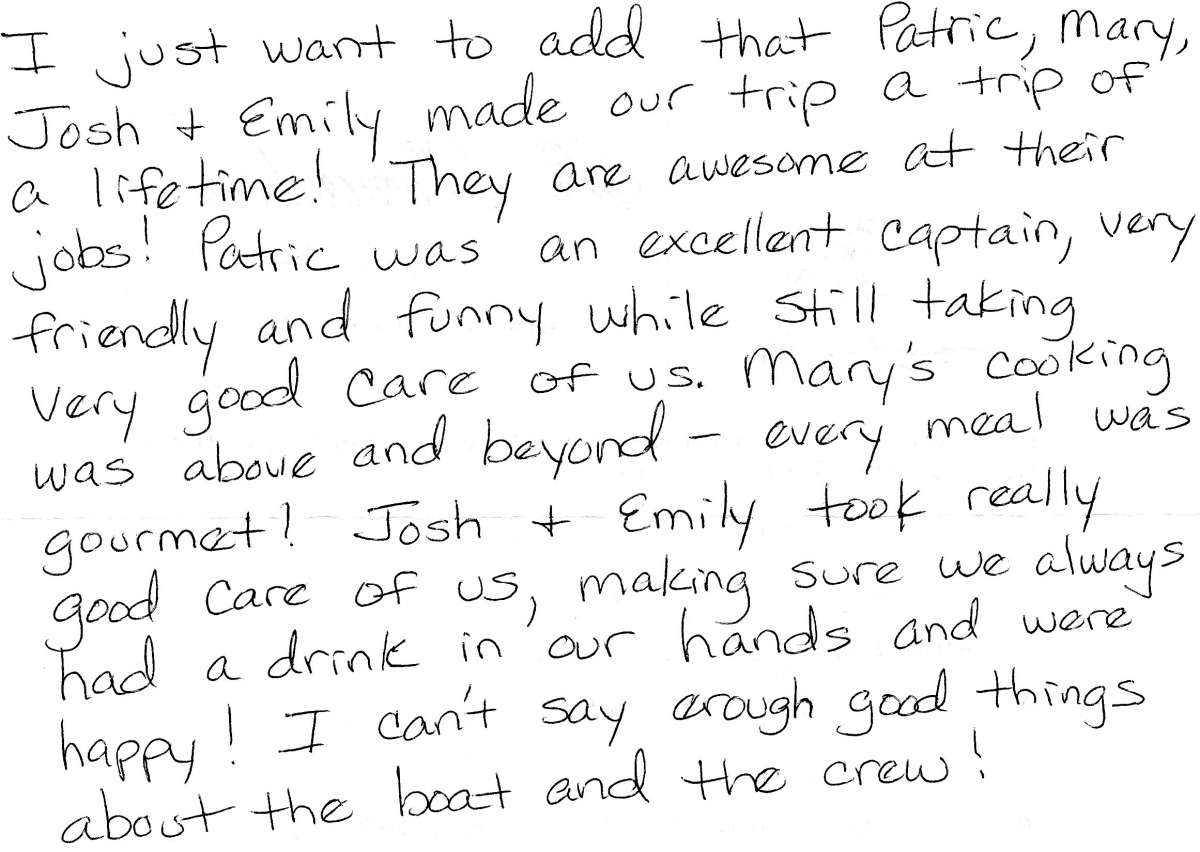 I just want to add that Patric, Mary,
Josh + Emily made our trip a trip of
a lifetime! They are awesome at their
jobs! Patric was an excellent captain, very
friendly and funny while still taking
very good care of us. Mary's cooking
was above and beyond - every meal was
gourmet! Josh + Emily took really
good care of us, making sure we always
had a drink in our hands and were
happy! I can't say enough good things
about the boat and the crew!